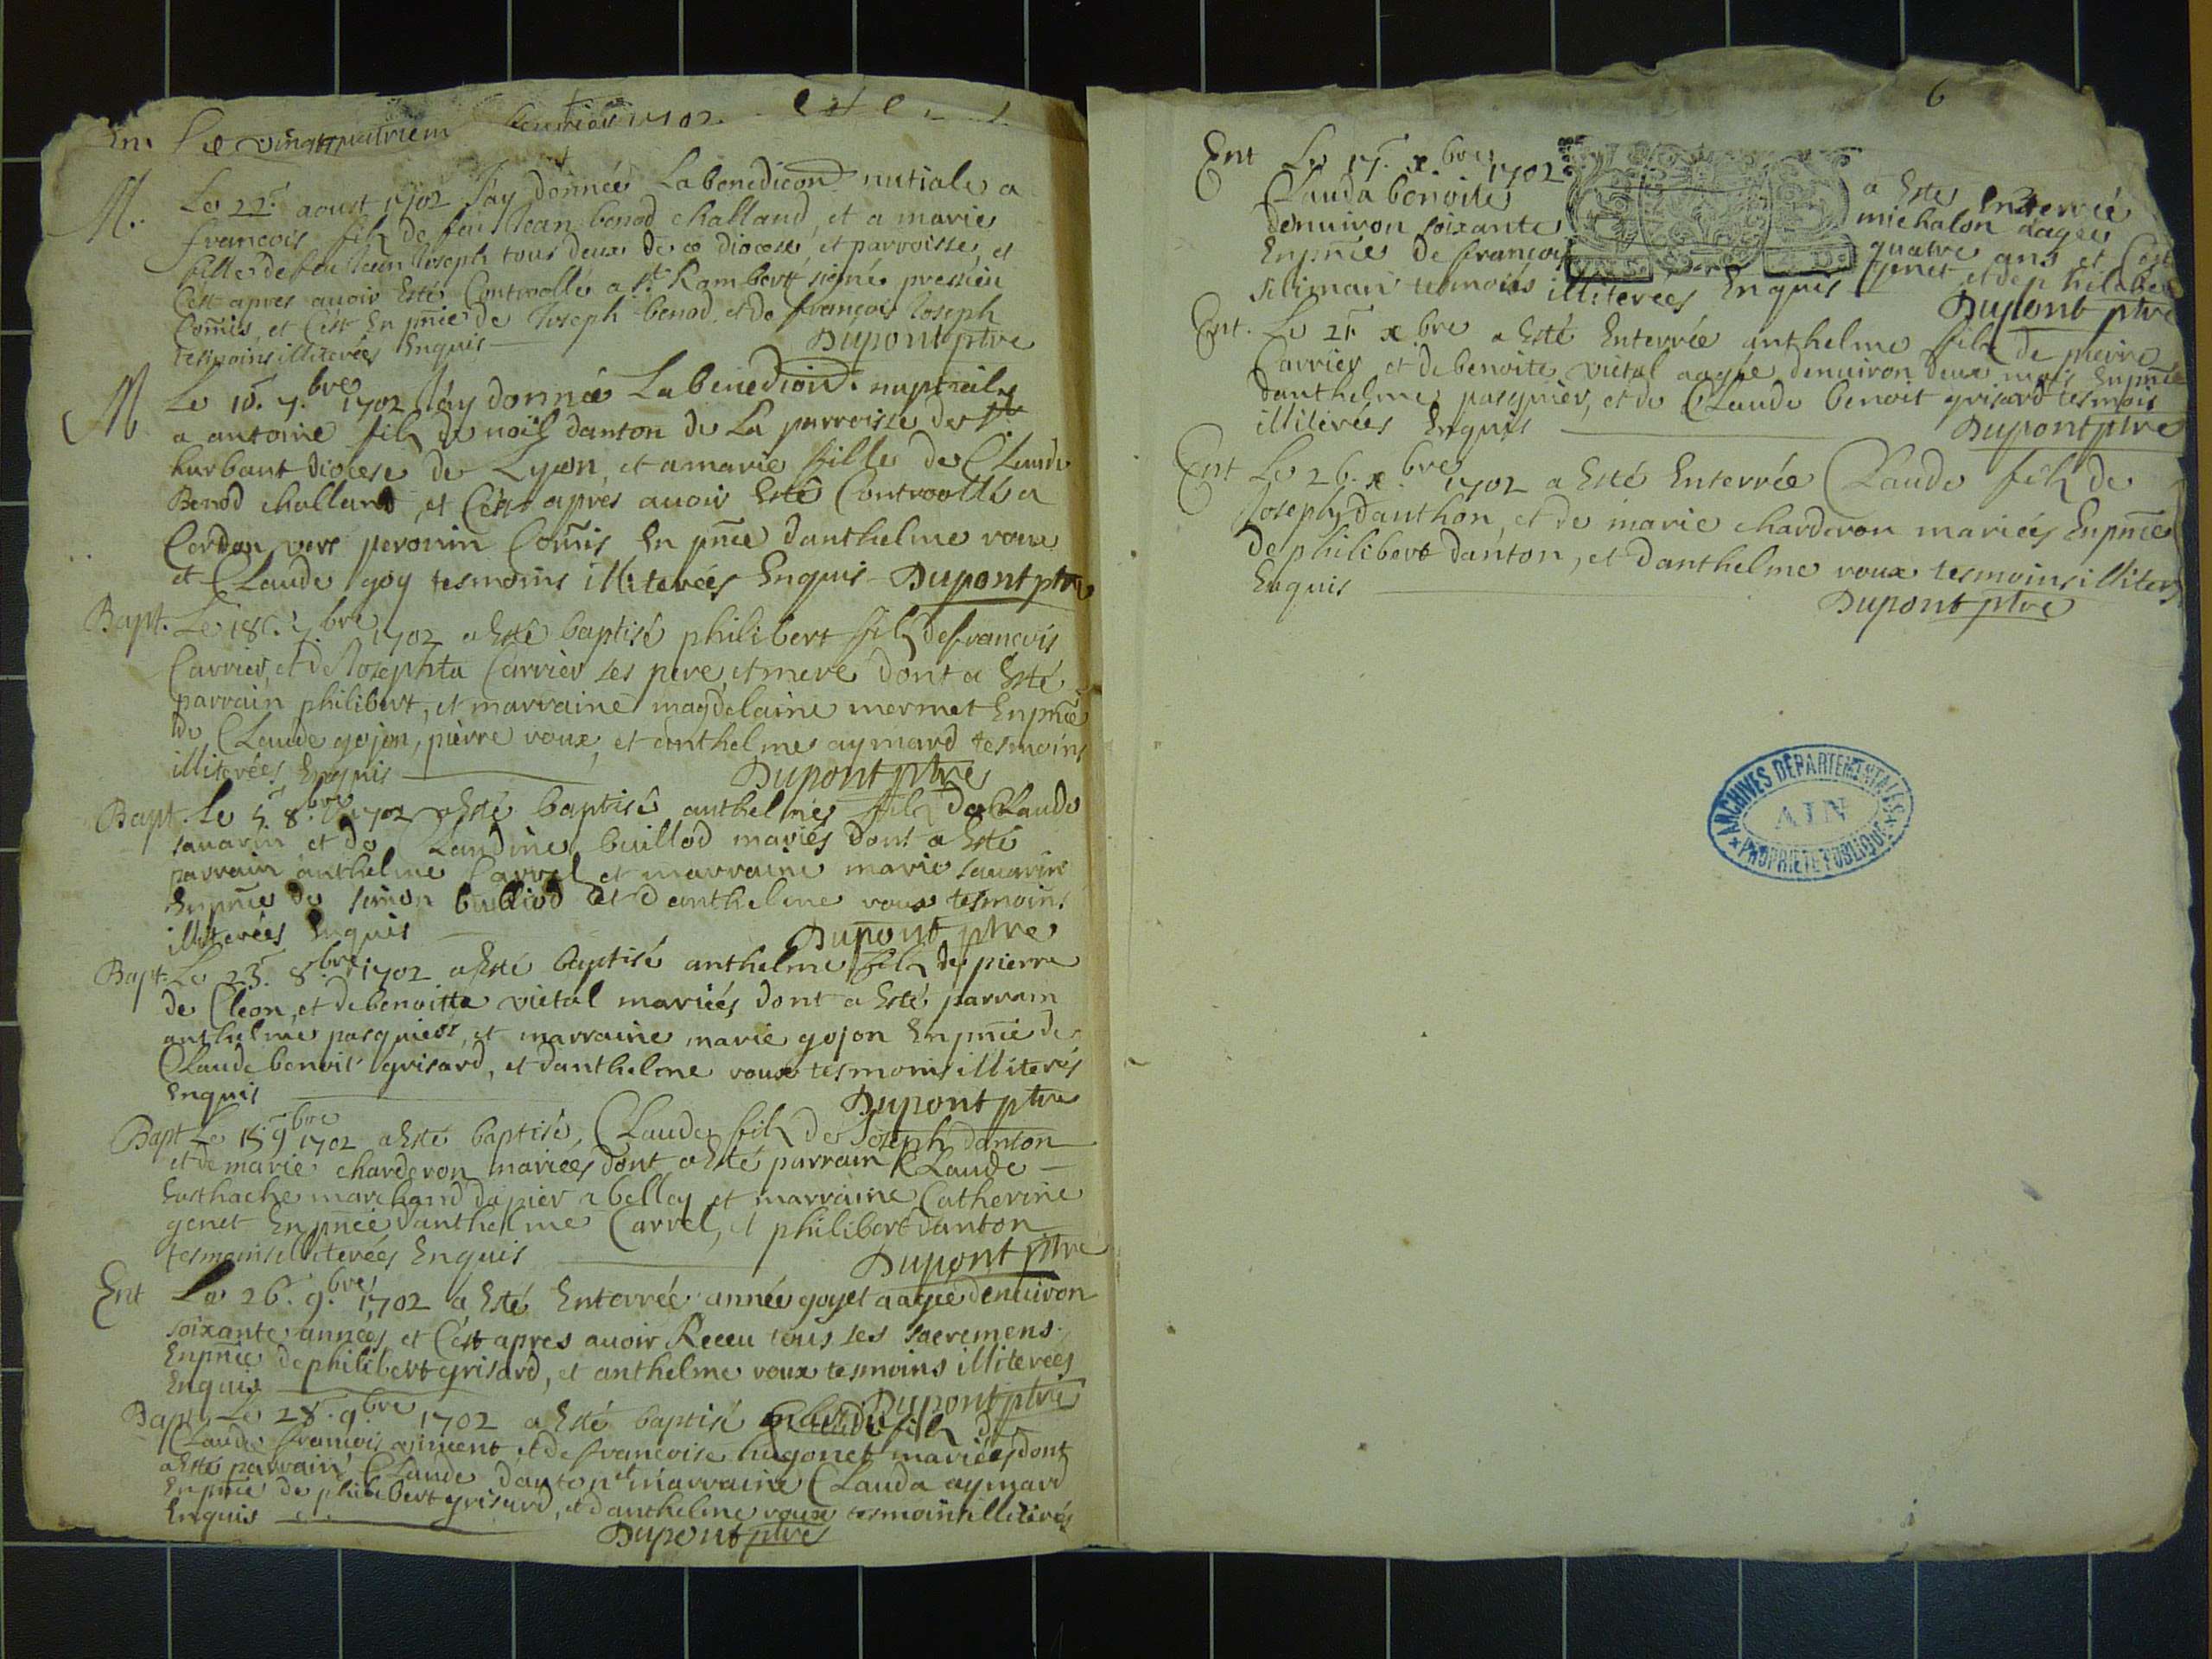 Ent Le vingtquatriem feuvrier 1702
M. Le 22e aoust 1702 J'ay donnée La benediction nutiale a
francois filz de feu Jean benod challand, et a marie
fille de feu Jean Joseph tous deux de ce diocese et parroisse, et
C'est apres avoir Esté Controollé a St Rambert signé pressieu
Com̃is, et C'est En pn̄ce de Joseph benod et de françois Joseph
tesmoins illiterées Enquis Dupont ptre
M Le 10e 7.bre 1702 J'ay donnée La benediction nuptiale
a antoine filz de noïl danton de La parroisse de St
hurbant diocese de Lyon, et a marie fille de Claude
Benod challand, et C'est apres avoir Esté Controollé a
Cordon vers peronin Com̃is En pn̄ce danthelme roux
et Claude goy tesmoins illiterées Enquis Dupont ptre
Bapt. Le 18e 7.bre 1702 a Esté baptisé philibert filz de françois
Carrier, et de Josephta Carrier ses pere, et mere dont a Esté
parrain philibert, et marraine magdelaine mermet En pn̄ce
de Claude gojon, pierre roux, et anthelme aymard tesmoins
illiterées Enquis Dupont ptre
Bapt. Le 5e 8.bre 1702 a Esté baptisé anthelme filz de Claude
savarin et de Landine buillod mariés dont a Esté
parrain anthelme Carrel et marraine marie savarin
En pn̄ce de simon buillod et danthelme roux tesmoins
illiterées Enquis Dupont ptre
Bapt. Le 23e 8bre 1702 a Esté baptisé anthelme filz de pierre
de Cleon, et de benoitte vietal mariées dont a Esté parrain
anthelme pasquier, et marraine marie gojon En pn̄ce de
Claude benoit grisard, et danthelme roux tesmoins illiterés
Enquis Dupont ptre
Bapt Le 15 9bre 1702 a Esté baptisé Claude filz de Joseph danton
et de marie charderon mariées dont a Esté parrain Claude
Eusthache marchand dapier a belley et marraine Catherine
genet En pn̄ce danthelme Carrel, et philibert danton
tesmoins illiterées Enquis Dupont ptre
Ent Le 26e 9.bre 1702 a Esté Enterrée année goyet aagée denuiron
soixante années et C'est apres avoir Receu tous ses sacremens
En pn̄ce de philibert grisard, et anthelme roux tesmoins illiterées
Enquis Dupont ptre
Bapt Le 28e 9.bre 1702 a Esté baptisé Claude filz de
Claude françois et de françoise hugonet mariées dont
a Esté parrain Claude danton et marraine Clauda aymard
En pn̄ce de philibert grisard, et danthelme roux tesmoins illiterés
Enquis Dupont ptre
6
Ent Le 17e xbre 1702 a Esté Enterrée
Clauda benoite michalon aagée
denuiron soixante quatre ans et C'est
En pn̄ce de françois genet et de philibert
siliman tesmoins illiterées Enquis Dupont ptre
Ent. Le 21e xbre a Esté Enterrée anthelme filz de pierre
Carrier et de benoite vietal aagée denuiron deux mois En pn̄ce
danthelme pasquier, et de Claude benoit grisard tesmois
illiterées Enquis Dupont ptre
Ent Le 26. x.bre 1702 a Esté Enterrée Claude filz de
Joseph danthon, et de marie charderon mariées En pn̄ce
de philibert danton, et danthelme roux tesmoins illiter
Enquis Dupont ptre
ARCHIVES DÉPARTEMENTALES
AIN
PROPRIÉTÉ PUBLIQUE